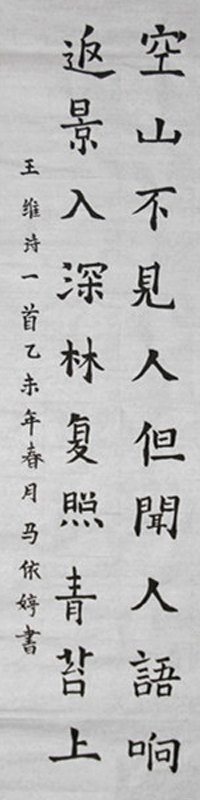 空山不見人但聞人語响
返景入深林复照青苔上
王维诗一首乙未年春月马依婷書